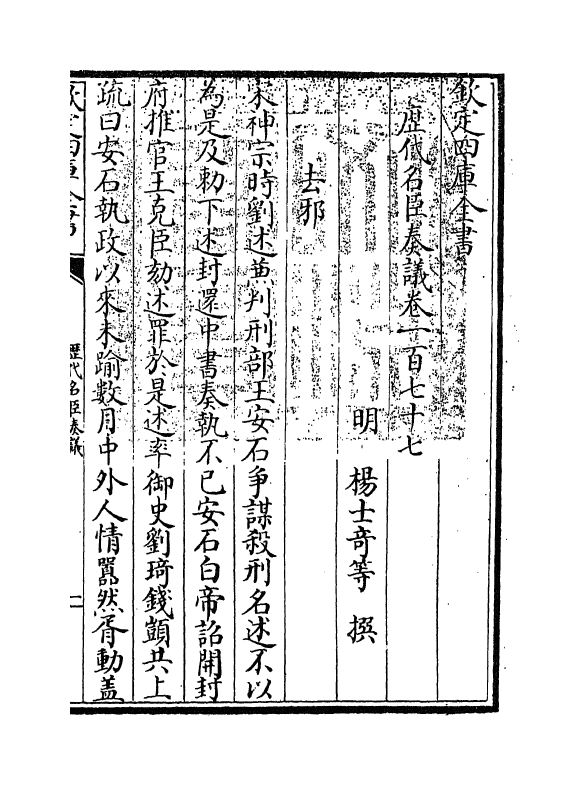 欽定四庫全書
歴代名臣奏議卷一百七十七
明 楊士竒等 撰
去邪
宋神宗時劉述兼判刑部王安石爭謀殺刑名述不以
為是及勅下述封還中書奏執不已安石白帝詔開封
府推官王克臣劾述罪於是述率御史劉琦錢顗共上
疏曰安石執政以來未踰數月中外人情囂然胥動蓋
欽定四庫全書
歷代名臣奏議